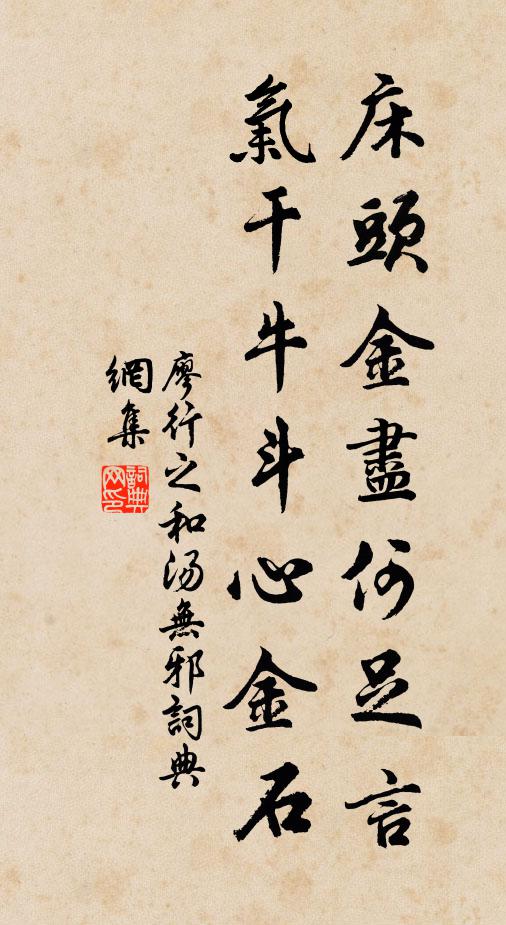 床頭金盡何足言
氣干牛斗心金石
廖行之和湯無邪詞典
網集
詞典
网印